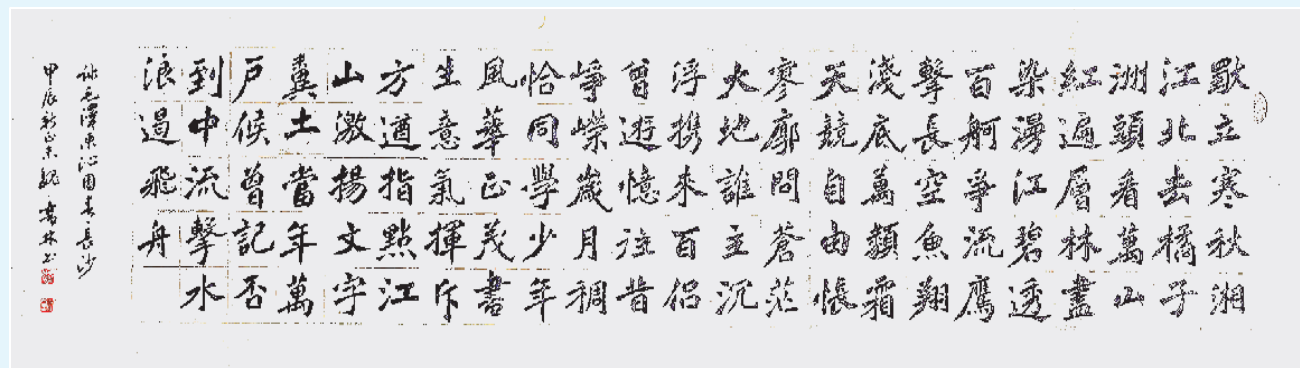 獨立寒秋湘
江北去橘子
洲頭看萬山
紅遍層林盡
染漫江碧透
百舸爭流鷹
擊長空魚翔
淺底萬類霜
天競自由悵
寥廓問蒼茫
大地誰主沉
浮携來百侣
曾遊憶往昔
崢嶸歲月稠
恰同學少年
風華正茂書
生意氣揮斥
方遒指點江
山激揚文字
糞土當年萬
戶候曾記否
到中流擊水
浪遏飛舟
詠毛澤東沁園春長沙
甲辰新正末魏林书